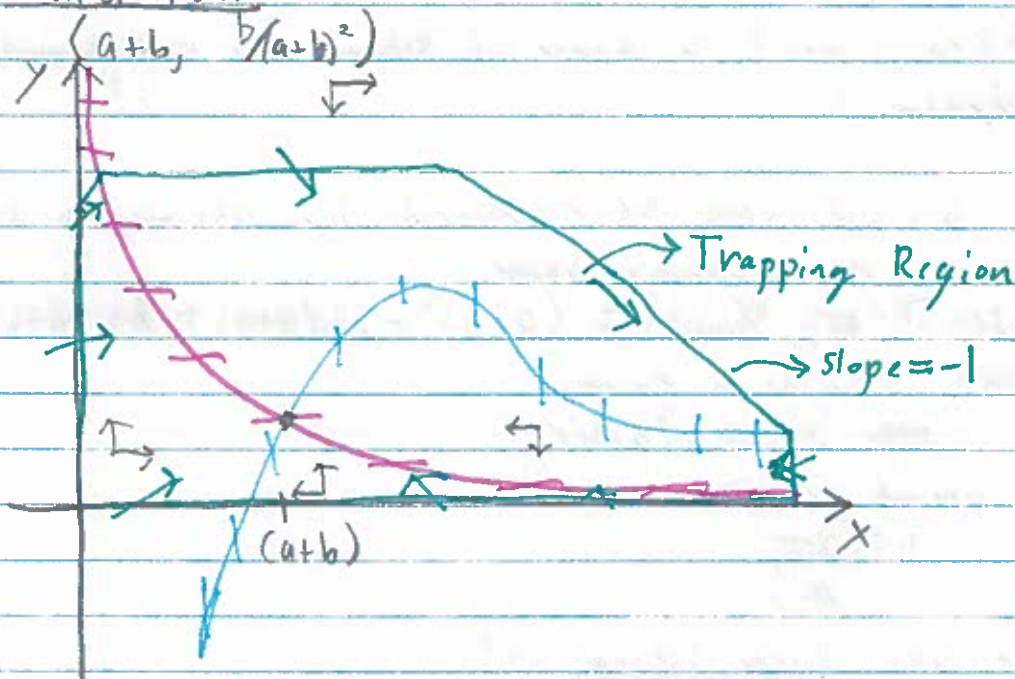 (a+b, b/(a+b)²)
y
Trapping Region
slope = -1
(a+b)
x